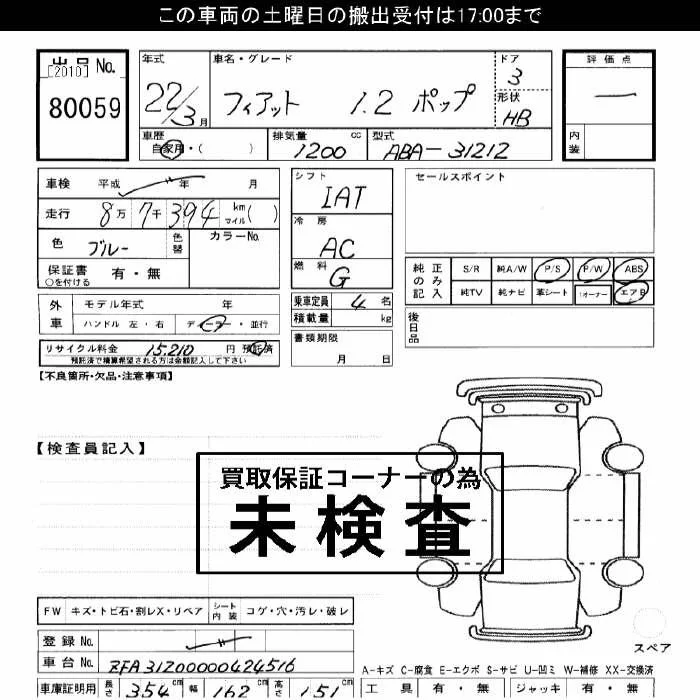 この車両の土曜日の搬出受付は17:00まで
出品 No.
[2010]
80059
年式
22/3月
車名・グレード
フィアット 1.2 ポップ
ドア
3
形状
HB
評価点
一
内装
車歴
自家用・( )
排気量 cc
1200
型式
ABA-31212
車検 平成 年 月
走行 8万7千394 km マイル( )
色 ブルー 色替
カラーNo.
保証書 有・無
○を付ける
外車 モデル年式 年
ハンドル 左・右 ディーラー・並行
リサイクル料金 15,210 円 預託済
預託済で積算希望される方は金額記入して下さい
シフト
IAT
冷房
AC
燃料
G
乗車定員 4 名
積載量 kg
書類期限
月 日
セールスポイント
純正のみ記入
S/R 純A/W P/S P/W ABS
純TV 純ナビ 革シート 1オーナー エアB
後日品
【不良箇所・欠品・注意事項】
【検査員記入】
買取保証コーナーの為
未検査
FW キズ・トビ石・割レX・リペア シート内装 コゲ・穴・汚レ・破レ
登録 No.
車台 No. ZFA31200000424516
車庫証明用 長さ 354 cm 幅 162 cm 高さ 151 cm
スペア
A-キズ C-腐食 E-エクボ S-サビ U-凹ミ W-補修 XX-交換済
工具 有・無 ジャッキ 有・無